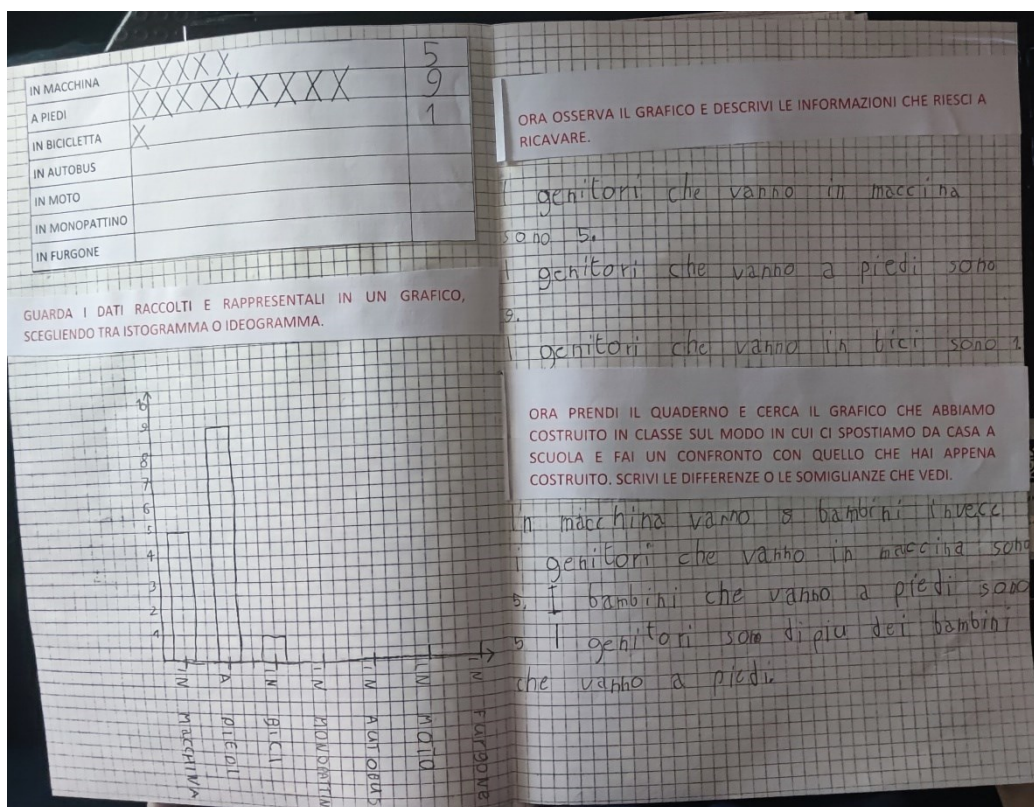 IN MACCHINA XXXXX 5
A PIEDI XXXXXXXXX 9
IN BICICLETTA X 1
IN AUTOBUS
IN MOTO
IN MONOPATTINO
IN FURGONE
GUARDA I DATI RACCOLTI E RAPPRESENTALI IN UN GRAFICO,
SCEGLIENDO TRA ISTOGRAMMA O IDEOGRAMMA.
9
8
7
6
5
4
3
2
1
IN MACCHINA
A PIEDI
IN BICI
IN MONOPATTIN
IN AUTOBUS
IN MOTO
IN FURGONE
ORA OSSERVA IL GRAFICO E DESCRIVI LE INFORMAZIONI CHE RIESCI A
RICAVARE.
I genitori che vanno in maccina
sono 5.
I genitori che vanno a piedi sono
9.
I genitori che vanno in bici sono 1.
ORA PRENDI IL QUADERNO E CERCA IL GRAFICO CHE ABBIAMO
COSTRUITO IN CLASSE SUL MODO IN CUI CI SPOSTIAMO DA CASA A
SCUOLA E FAI UN CONFRONTO CON QUELLO CHE HAI APPENA
COSTRUITO. SCRIVI LE DIFFERENZE O LE SOMIGLIANZE CHE VEDI.
In macchina vanno 8 bambini invece
i genitori che vanno in maccina sono
5. I bambini che vanno a piedi sono
5 I genitori son di piu dei bambini
che vanno a piedi.